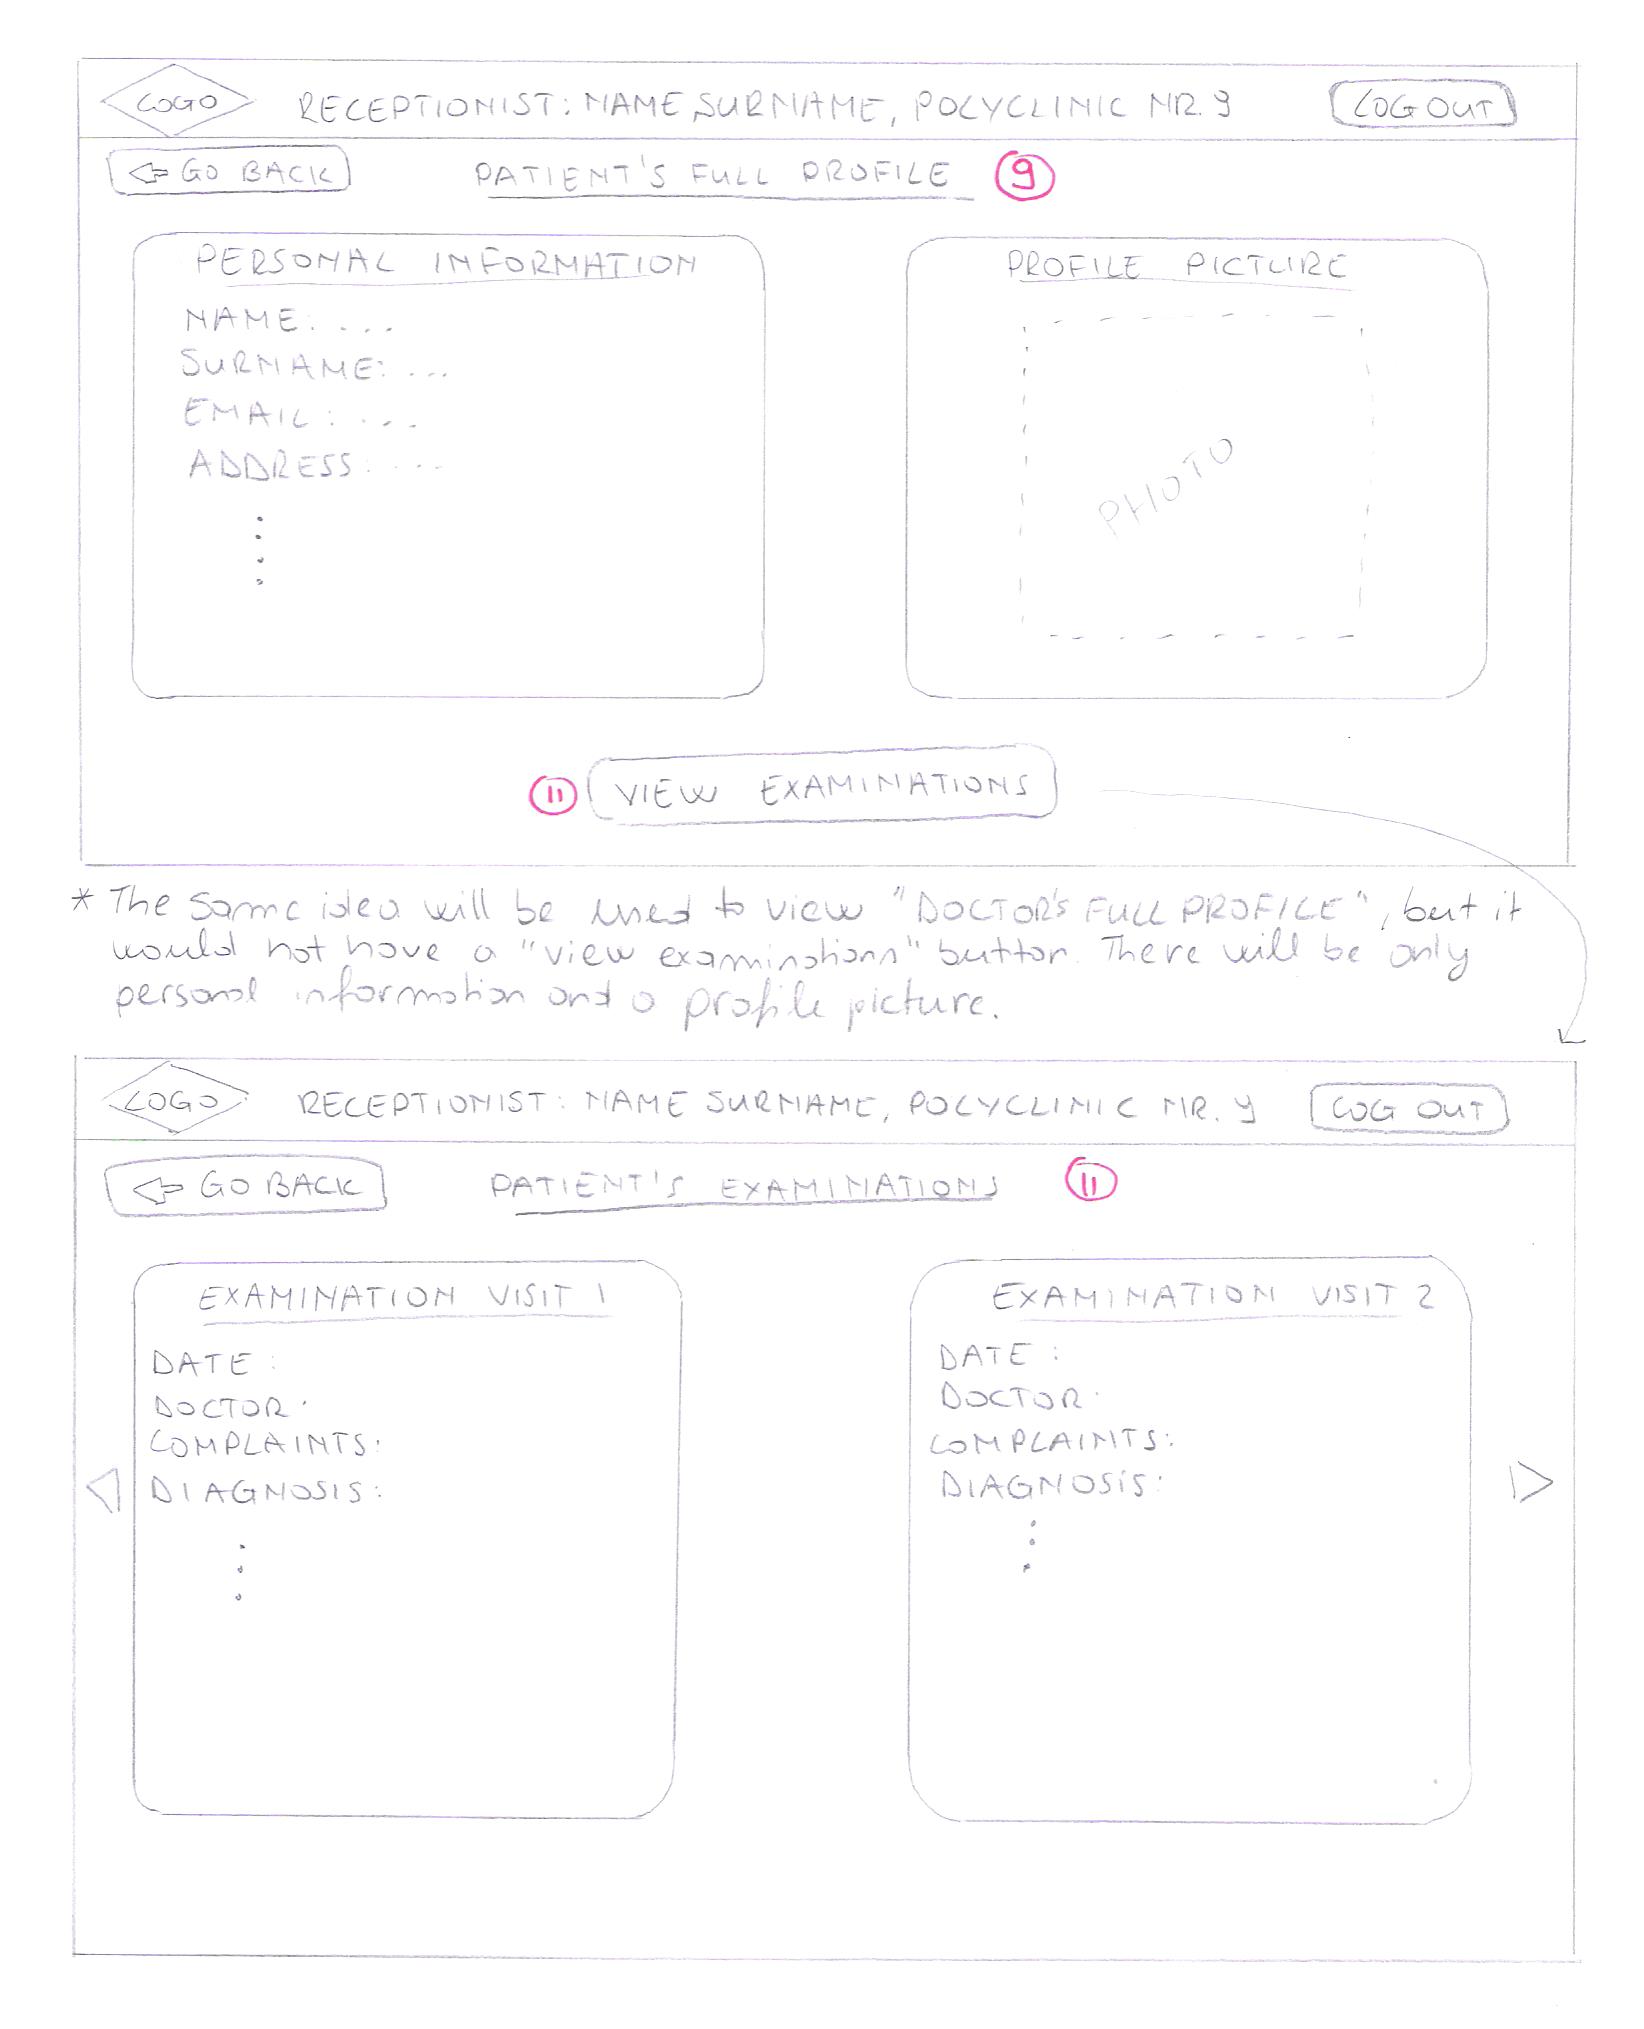 LOGO RECEPTIONIST: NAME SURNAME, POLYCLINIC NR. 9 LOG OUT
GO BACK PATIENT'S FULL PROFILE 9
PERSONAL INFORMATION PROFILE PICTURE
NAME: ...
SURNAME: ...
EMAIL: ...
ADDRESS: ...
PHOTO
11 VIEW EXAMINATIONS
* The same idea will be used to view "DOCTOR'S FULL PROFILE", but it
would not have a "view examinations" button. There will be only
personal information and a profile picture.
LOGO RECEPTIONIST: NAME SURNAME, POLYCLINIC NR. 9 LOG OUT
GO BACK PATIENT'S EXAMINATIONS 11
EXAMINATION VISIT 1 EXAMINATION VISIT 2
DATE: DATE:
DOCTOR: DOCTOR:
COMPLAINTS: COMPLAINTS:
DIAGNOSIS: DIAGNOSIS: